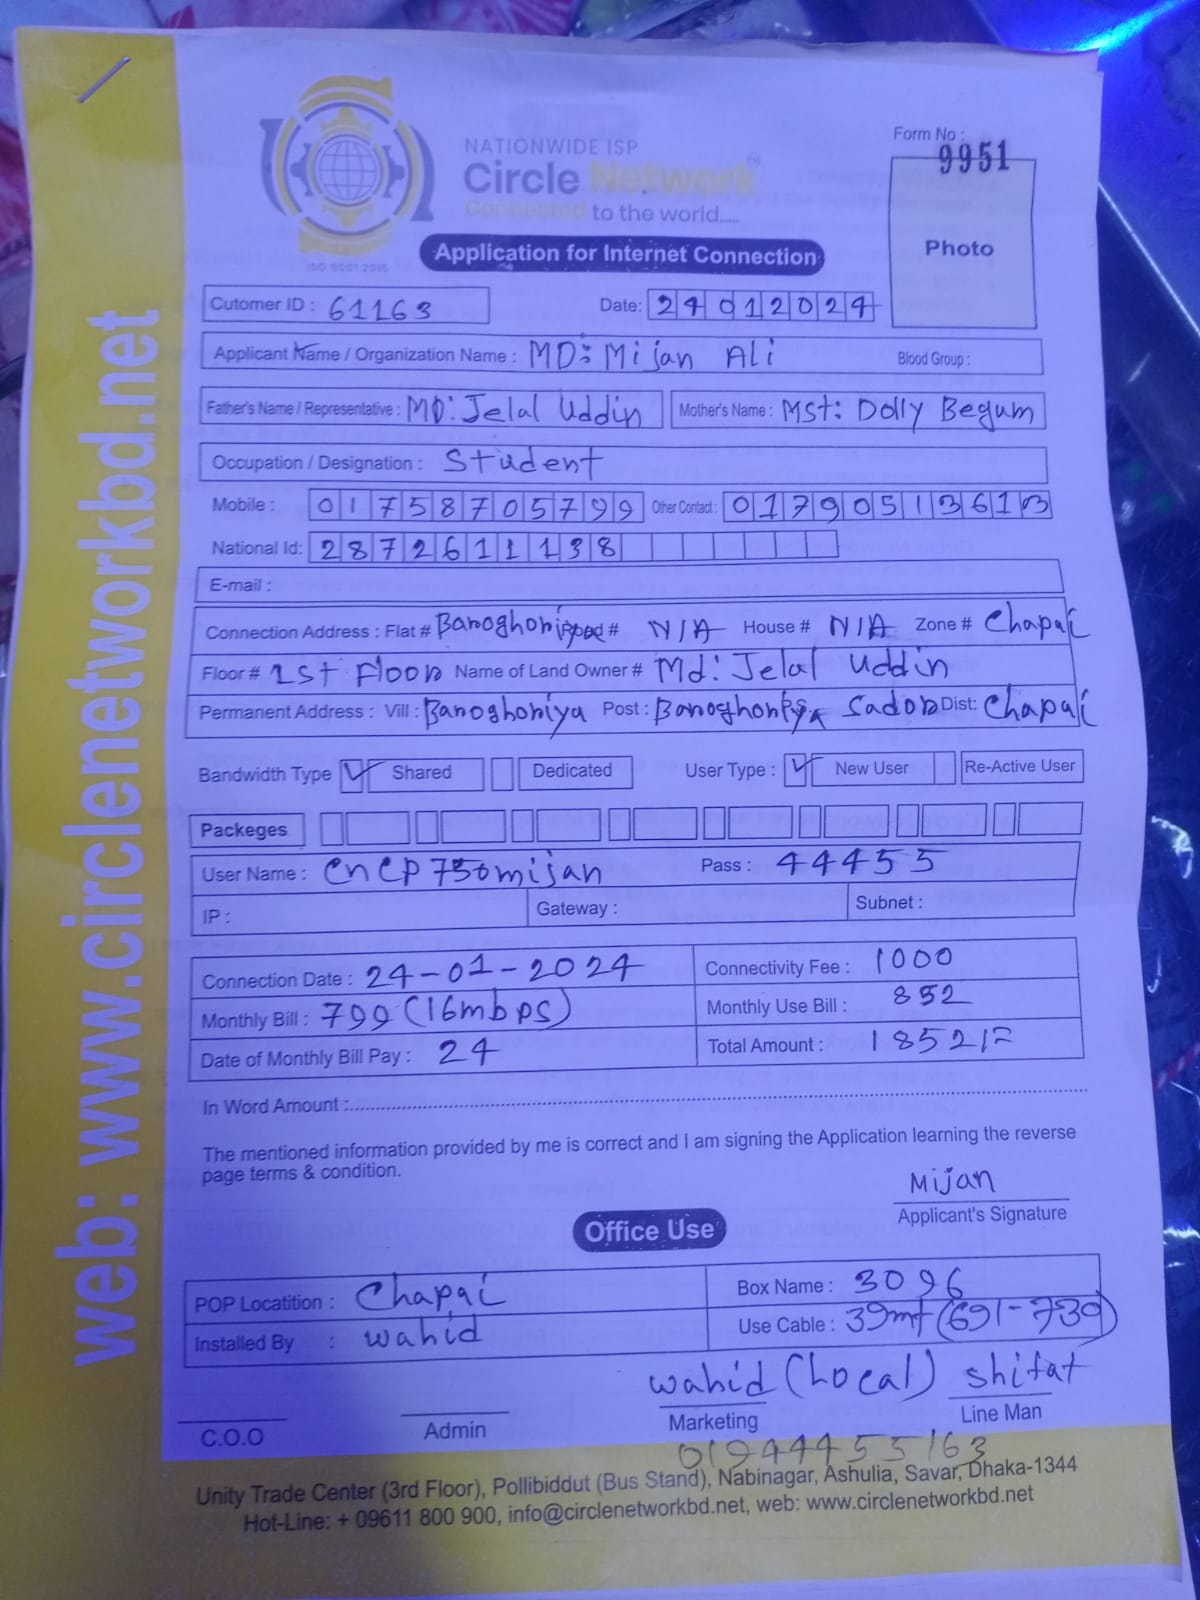 Form No :
9951
NATIONWIDE ISP
Circle Network
Connected to the world.....
ISO 9001:2015
Photo
Application for Internet Connection
Cutomer ID : 61163 Date: 24012024
Applicant Name / Organization Name : MD: Mijan Ali Blood Group :
Father's Name / Representative : MD: Jelal Uddin Mother's Name : MSt: Dolly Begum
Occupation / Designation : Student
Mobile : 01758705799 Other Contact : 01790513613
National Id: 2872611138
E-mail :
Connection Address : Flat # Banoghoniya Road # N/A House # N/A Zone # Chapai
Floor # 1st Floor Name of Land Owner # Md: Jelal Uddin
Permanent Address : Vill : Banoghoniya Post : Banoghoniya Sador Dist: Chapai
Bandwidth Type Shared Dedicated User Type : New User Re-Active User
Packeges
User Name : cncp750mijan Pass : 44455
IP : Gateway : Subnet :
Connection Date : 24-01-2024 Connectivity Fee : 1000
Monthly Bill : 799 (16mbps) Monthly Use Bill : 852
Date of Monthly Bill Pay : 24 Total Amount : 1852/=
In Word Amount :
The mentioned information provided by me is correct and I am signing the Application learning the reverse
page terms & condition.
Mijan
Applicant's Signature
Office Use
POP Locatition : Chapai Box Name : 3096
Installed By : wahid Use Cable : 39mt (691-730)
wahid (Local) shifat
C.O.O Admin Marketing Line Man
01944455163
Unity Trade Center (3rd Floor), Pollibiddut (Bus Stand), Nabinagar, Ashulia, Savar, Dhaka-1344
Hot-Line: + 09611 800 900, info@circlenetworkbd.net, web: www.circlenetworkbd.net
web: www.circlenetworkbd.net